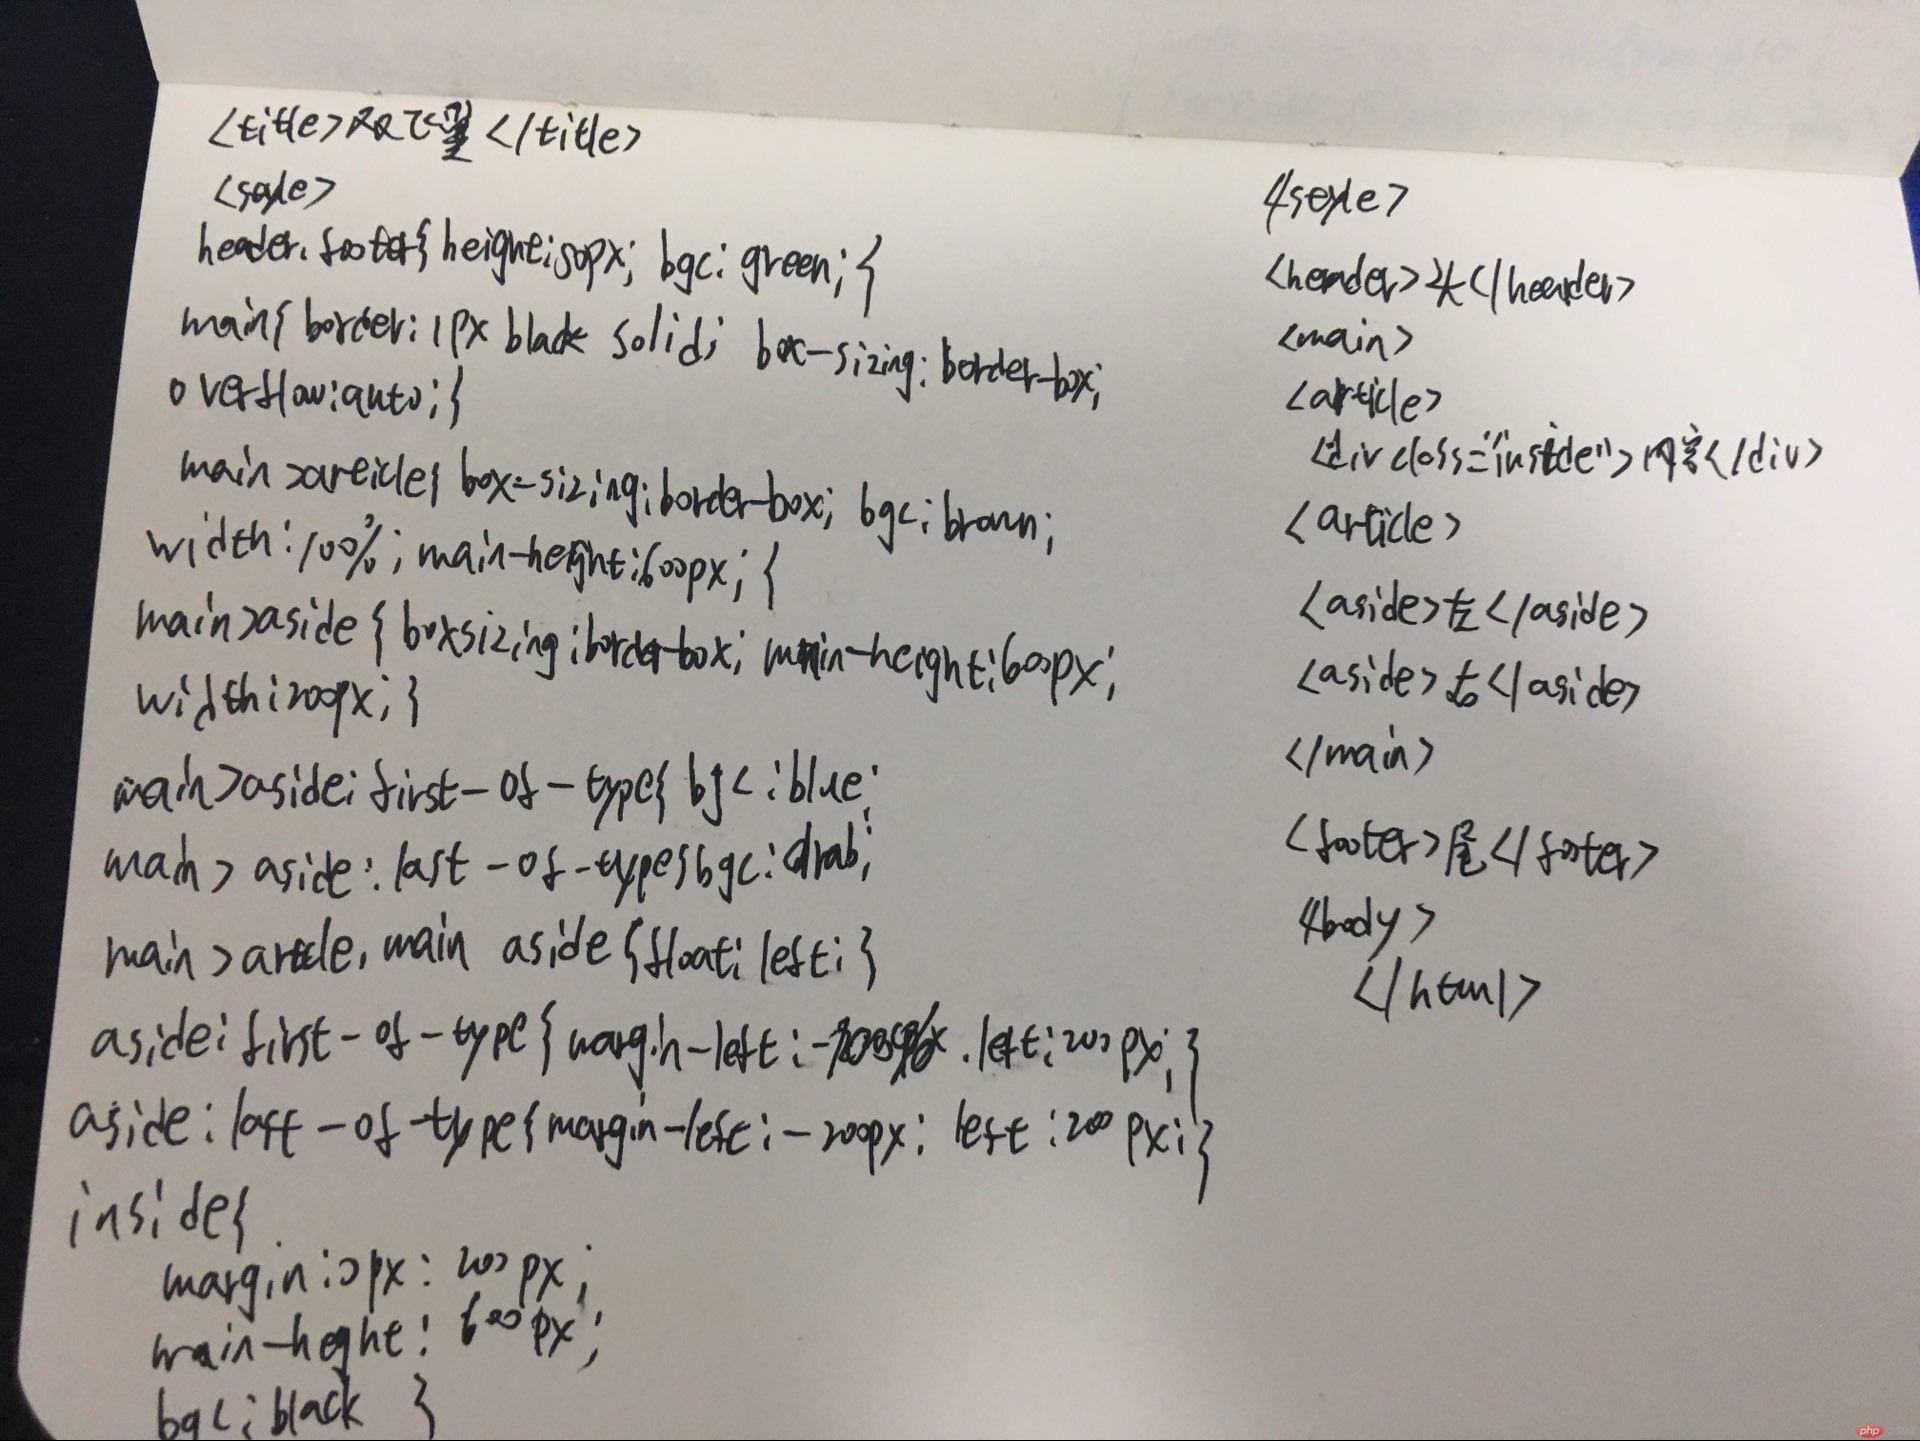 <title>双飞翼</title>
<style>
header.footer{ height:50px; bgc: green; {
main{ border: 1px black solid; box-sizing: border-box;
overflow:auto; }
main>areicle{ box-sizing:border-box; bgc: brown;
width: 100%; main-height:600px; {
main>aside { boxsizing:border-box; main-height:600px;
width:200px; }
main>aside: first-of-type{ bgc: blue;
main> aside: last-of-type{bgc: drab;
main>article, main aside {float: left; }
aside: first-of-type { margin-left: left: 200px; }
aside: last-of-type{ margin-left: -200px; left: 200px; }
inside{
margin:0px: 200px;
main-heght: 600px;
bgc: black }
</style>
<header>头</header>
<main>
<article>
<div class="inside">内容</div>
<article>
<aside>左</aside>
<aside>右</aside>
</main>
<footer>尾</footer>
</body>
</html>
php